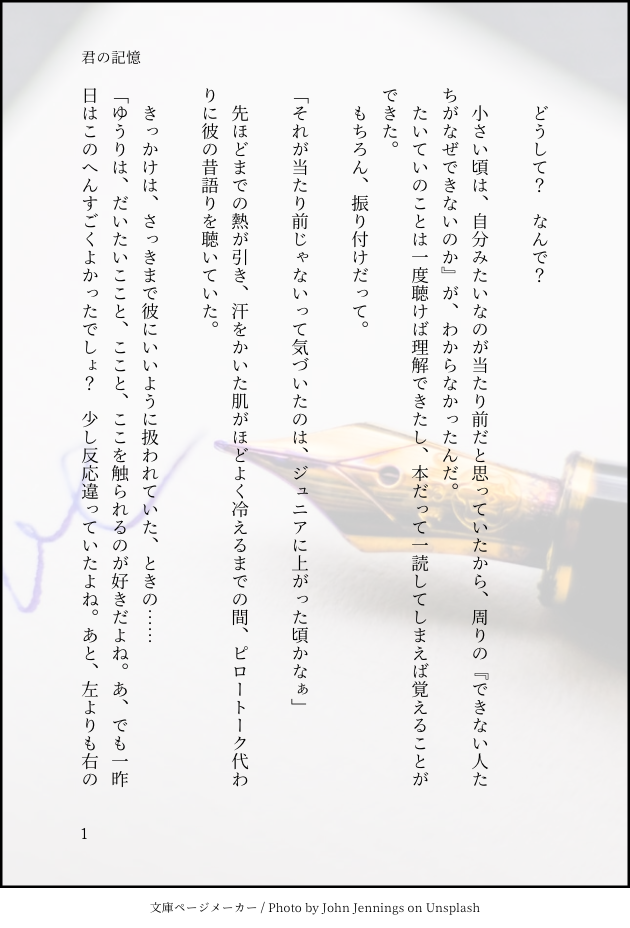 君の記憶
どうして？　なんで？
小さい頃は、自分みたいなのが当たり前だと思っていたから、周りの『できない人た
ちがなぜできないのか』が、わからなかったんだ。
たいていのことは一度聴けば理解できたし、本だって一読してしまえば覚えることが
できた。
もちろん、振り付けだって。
「それが当たり前じゃないって気づいたのは、ジュニアに上がった頃かなぁ」
先ほどまでの熱が引き、汗をかいた肌がほどよく冷えるまでの間、ピロートーク代わ
りに彼の昔語りを聴いていた。
きっかけは、さっきまで彼にいいように扱われていた、ときの……
「ゆうりは、だいたいこここと、ここと、ここを触られるのが好きだよね。あ、でも一昨
日はこのへんすごくよかったでしょ？　少し反応違っていたよね。あと、左よりも右の
1
文庫ページメーカー / Photo by John Jennings on Unsplash